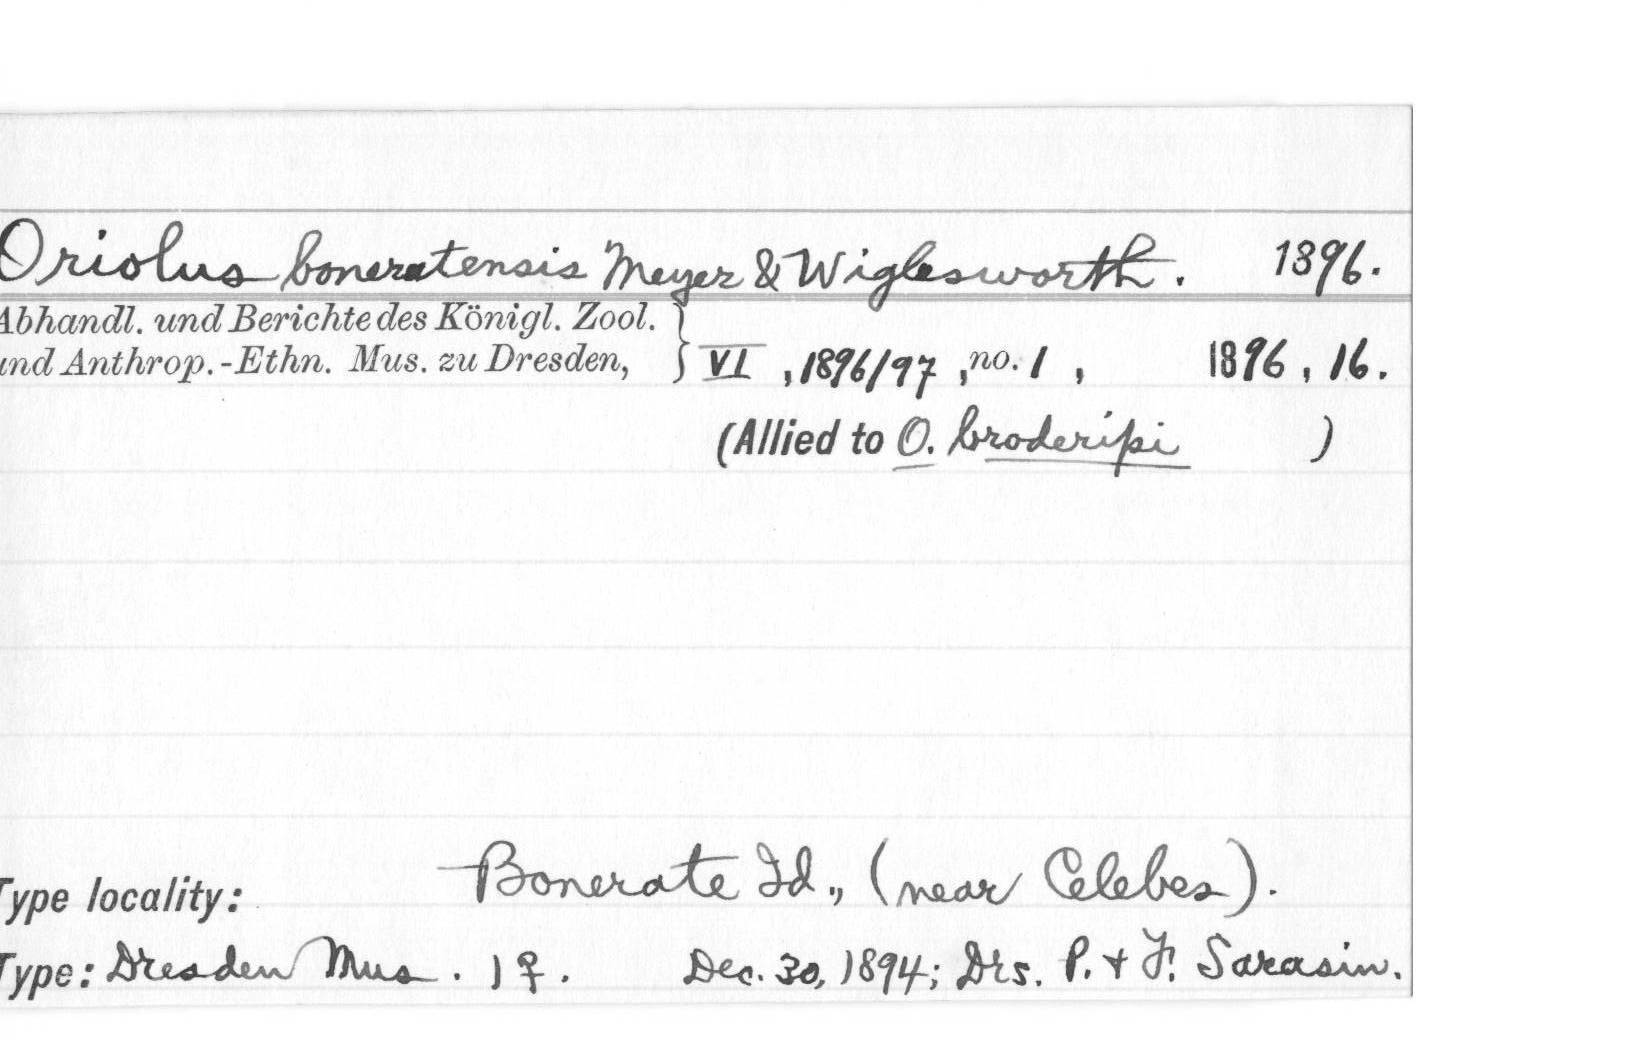 Oriolus boneratensis Meyer & Wiglesworth. 1896.
Abhandl. und Berichte des Königl. Zool.
und Anthrop.-Ethn. Mus. zu Dresden, } VI, 1896/97, no. 1, 1896, 16.
(Allied to O. broderipi )
Type locality: Bonerate Id., (near Celebes).
Type: Dresden Mus. 1 ♀. Dec. 30, 1894; Drs. P. + F. Sarasin.